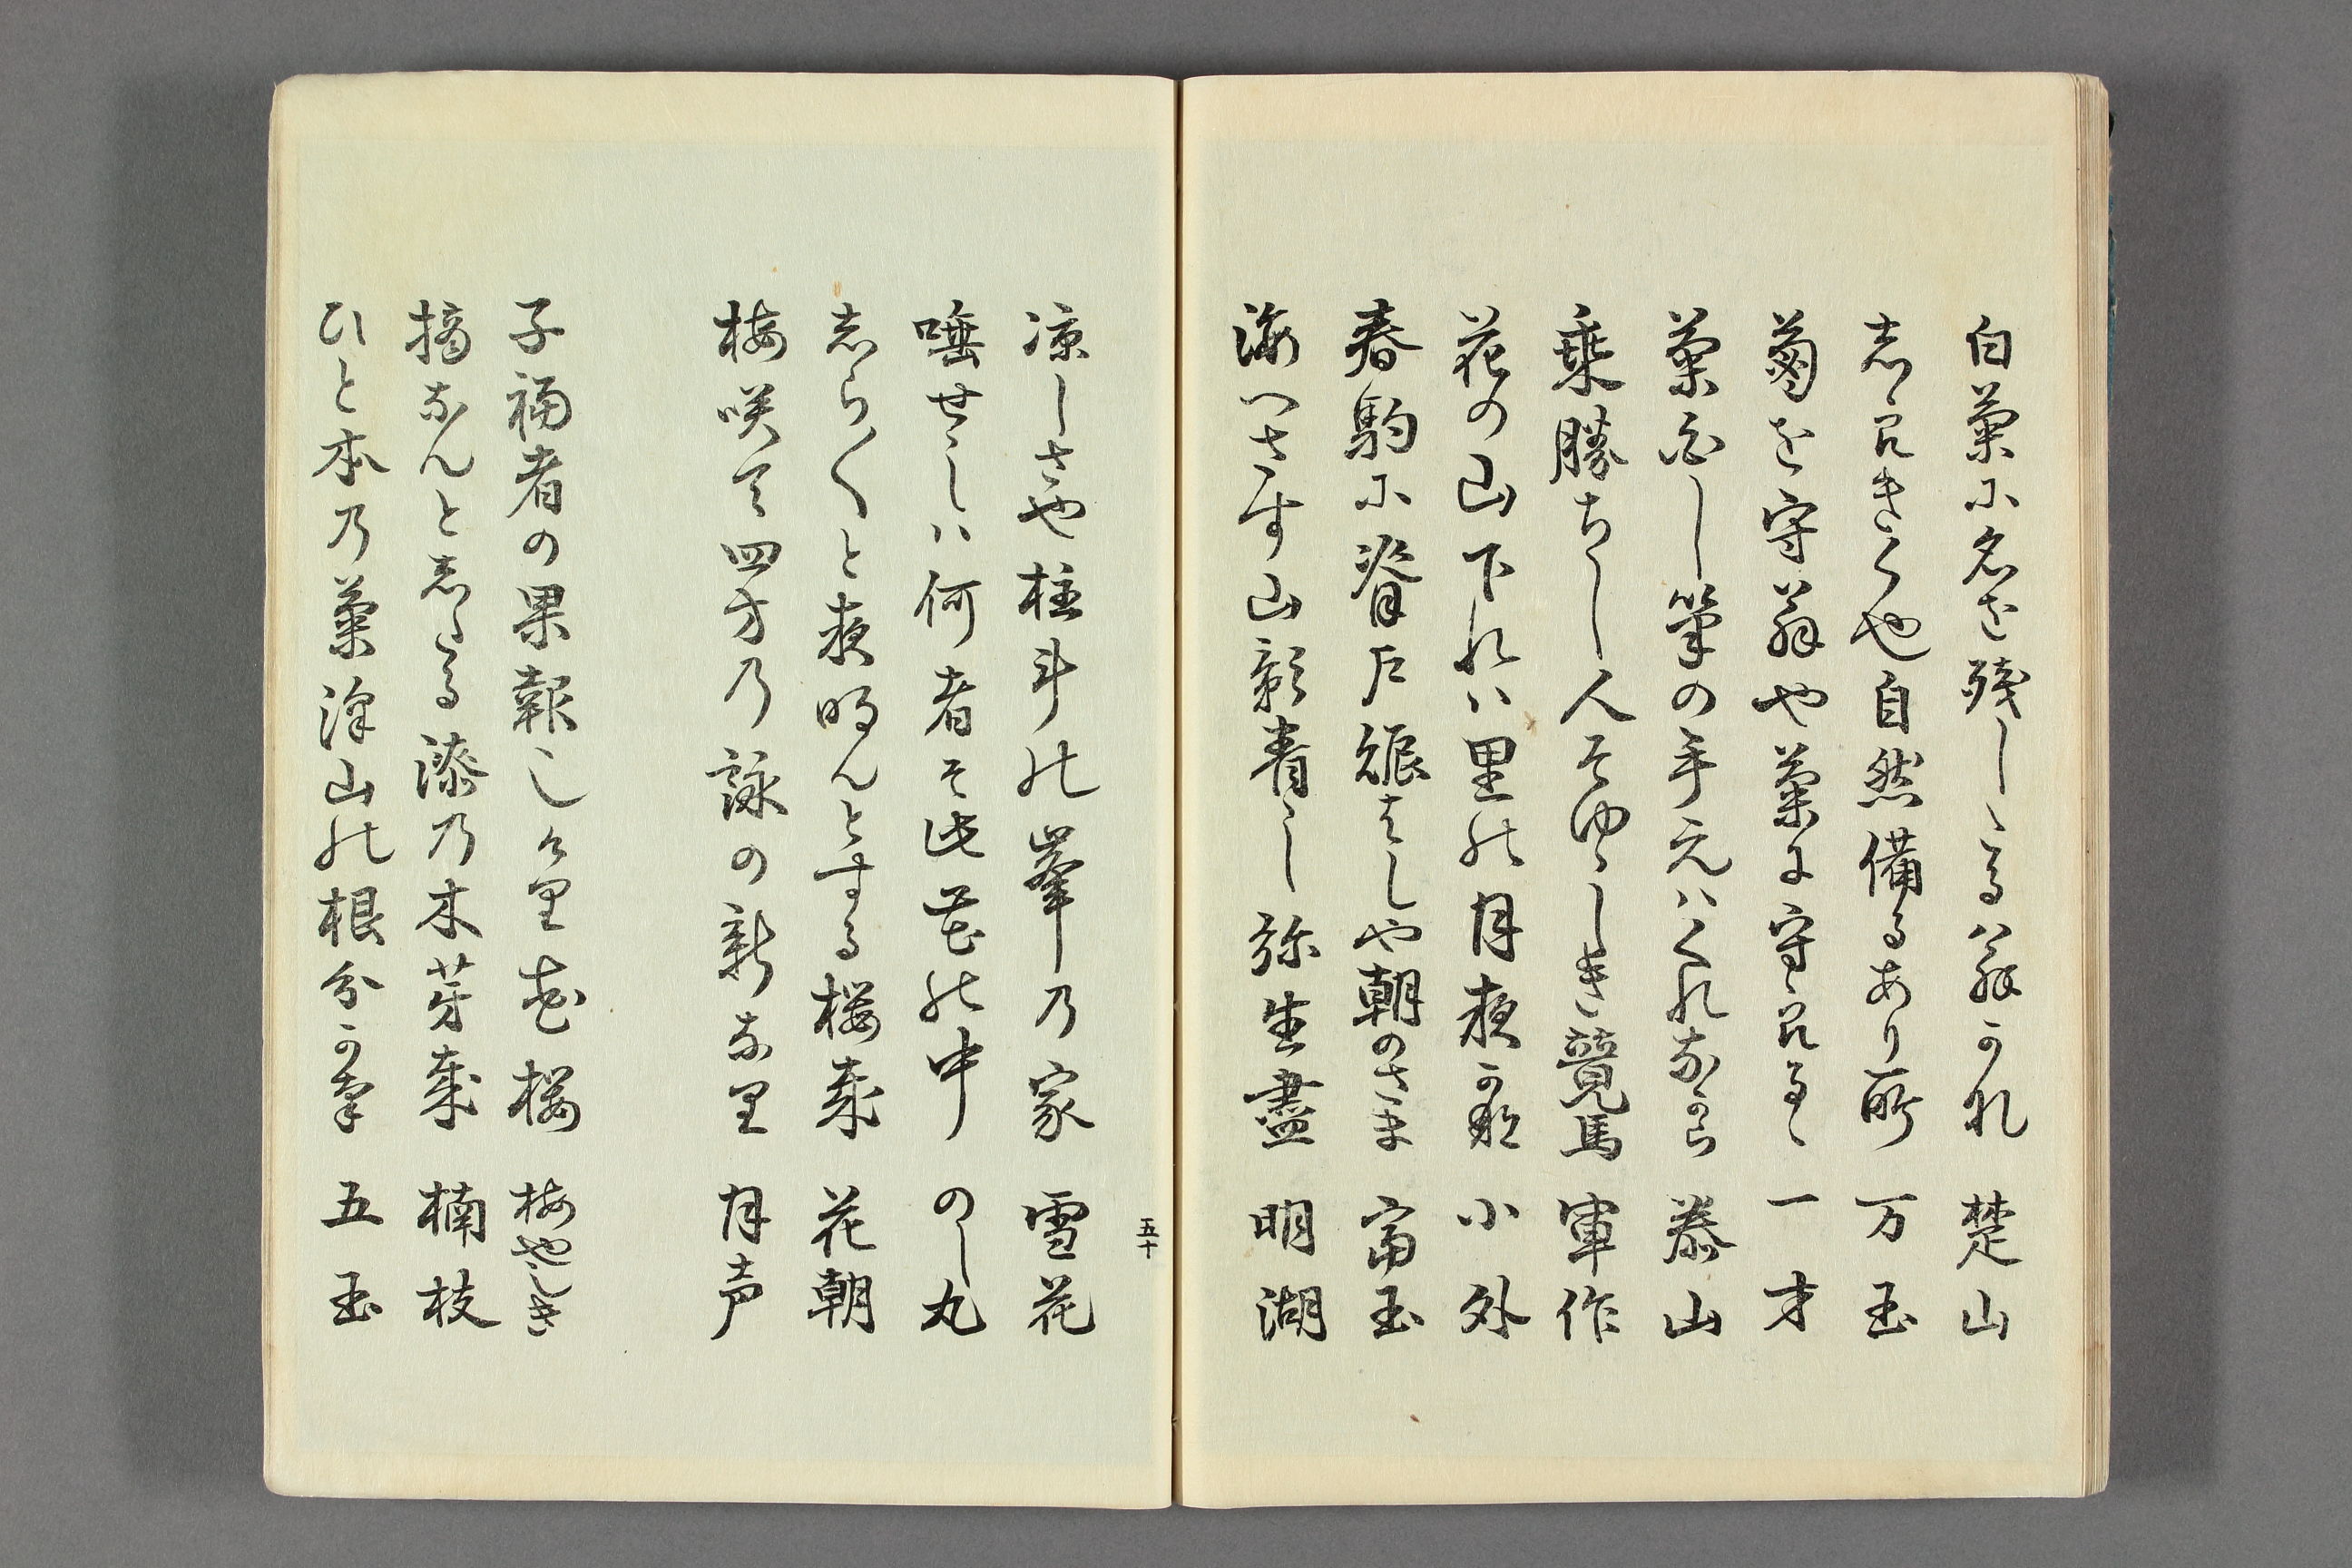 白菊に名を残しける翁かな 楚山
しらきくや自然備るあり所 万玉
菊を守翁や菊に守らるゝ 一才
菊白し筆の手元はくれなから 泰山
乗勝ちし人そゆゝしき競馬 軍作
花の山下れは里の月夜かな 小外
春駒に脊戸賑はしや朝のさま 富玉
海へさす山影青し弥生尽 明湖
五十
涼しさや柱斗の峯の家 雪花
唾せしは何者そ此花の中 のし丸
しら〳〵と夜明んとする桜哉 花朝
梅咲て四方の詠の新なり 月声
子福者の果報しけり花桜 梅やしき
摘なんとしたる漆の木芽哉 楠枝
ひと本の菊深山の根分かな 五玉